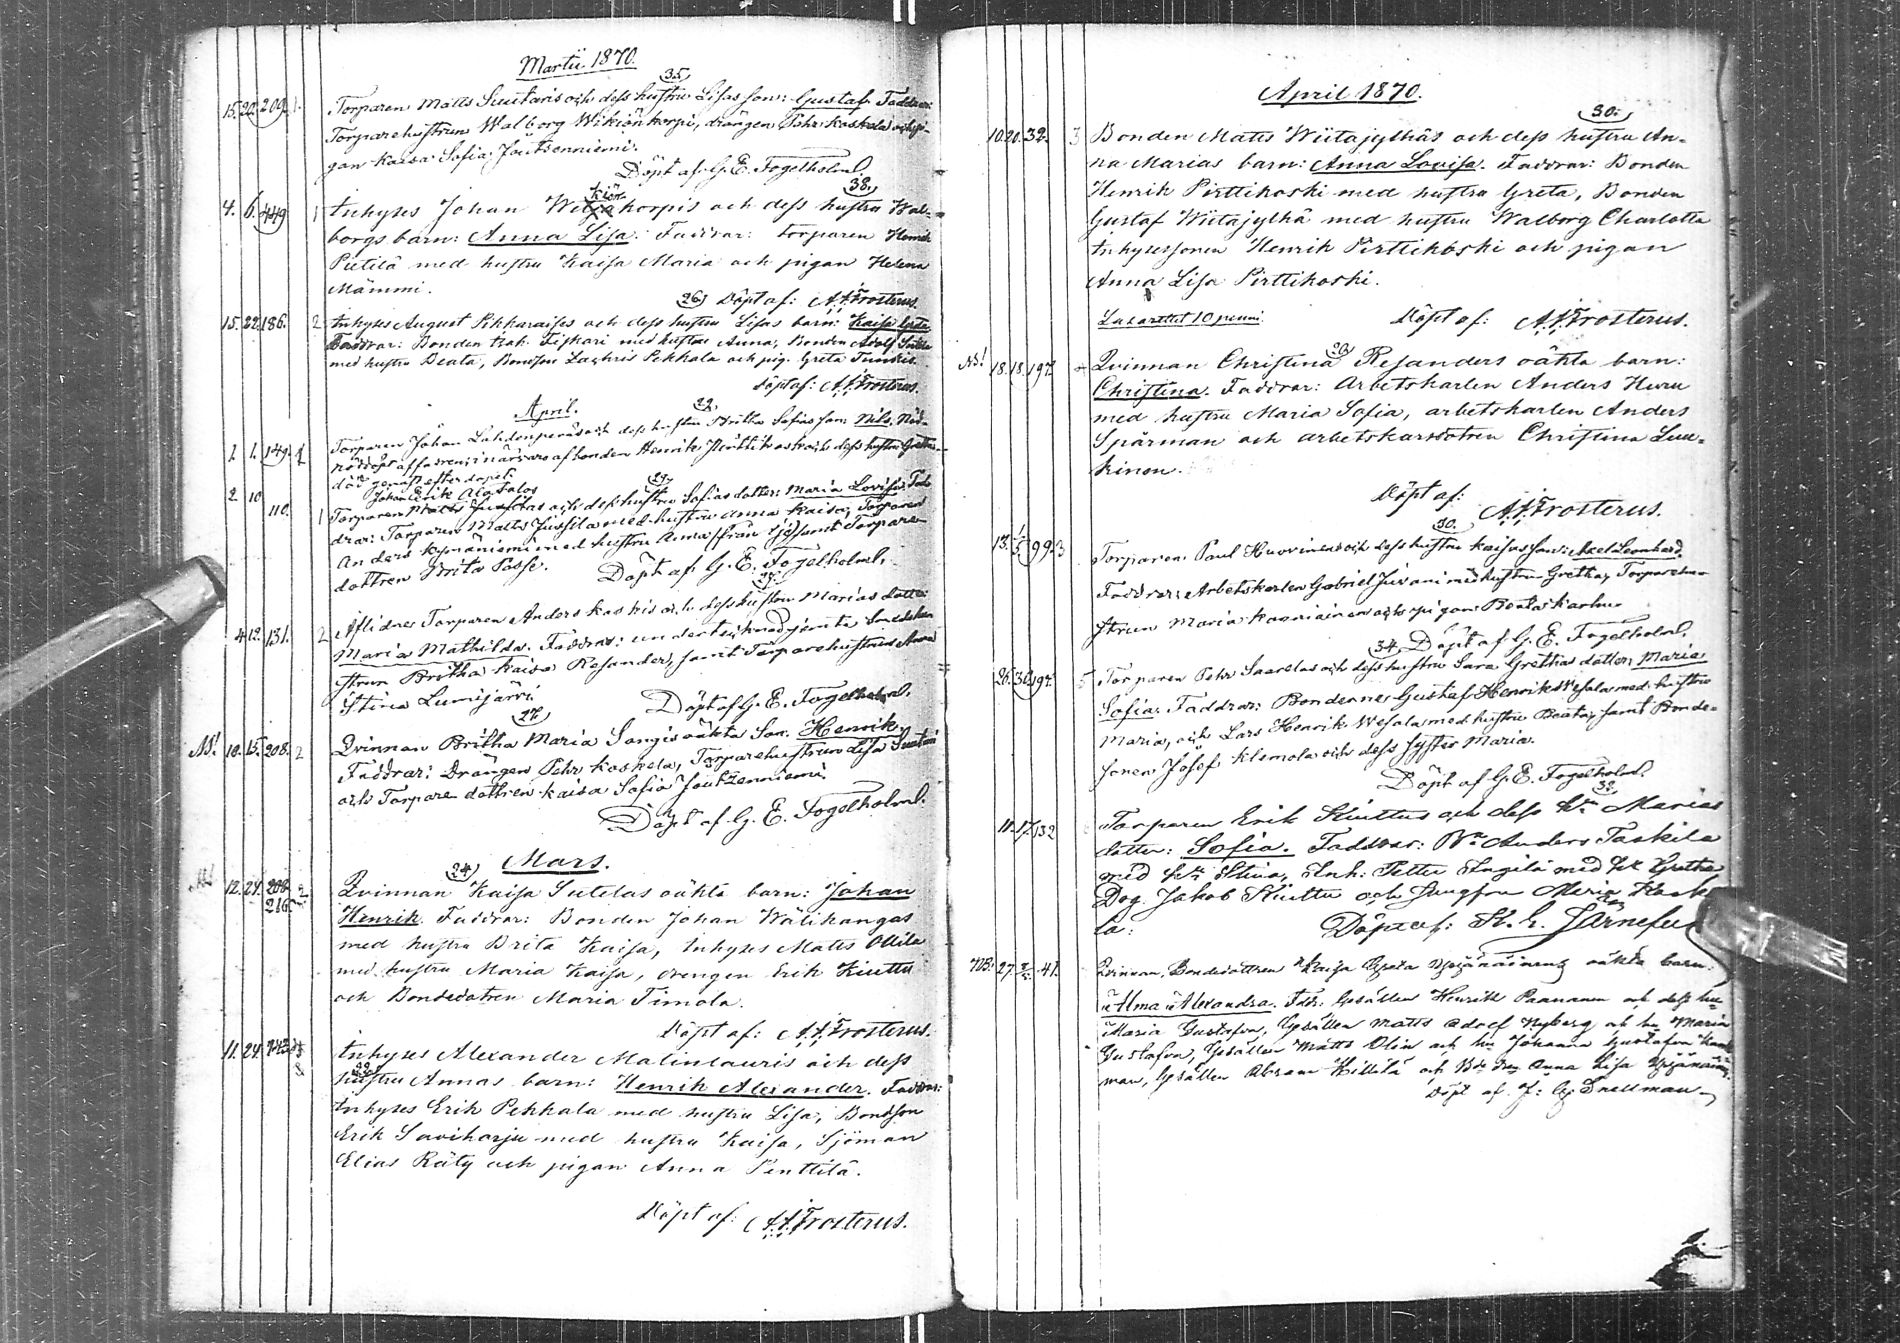 Martii 1870.
35
15. 20. 209. 1. Torparen Matts Suutaris och dess hustru Lisas son: Gustaf. Faddrar:
Torparehustrun Walborg Wikiönkorpi, drängen Pehr Koskela och pi-
gan Kaisa Sofia Joutsenniemi.
Döpt af G. E. Fogelholm.
38.
4. 6. 449 1 Inhyses Johan korpis och dess hustru Wal-
borgs barn: Anna Lisa. Faddrar: torparen Henrik
Pietilä med hustru Kaisa Maria och pigan Helena
Mämmi.
26 Döpt af: A. F. Frosterus.
15. 22. 186. 2 Inhyses August Pekkaraises och dess hustru Lisas barn: Kaisa Greta
Faddrar: Bonden Isak Tiskari med hustru Anna, Bonden Adolf
med hustru Beata, Bondson Zachris Pekkala och pig. Greta
Döpt af: A. F. Frosterus.
April.
22.
1. 1. 149. 1 Torparen Johan Lahdenperäs och dess hustru Britha Sofias son: Nils. Nöd-
nöddöpt af fadren i närvaro af bonden Henrik Pirttikoski och dess hustru Gretha
död genast efter dopet.
Johan Erik Alatalos
27.
2. 10 110. 1 Torparen och dess hustru Sofias dotter: Maria Lovisa. Fad-
drar: Torparen Matts Jussila med hustru Anna Kaisa, Torparen
Anders Kynäniemi med hustru Anna (från Ijo) samt Torpare-
dottren Brita Posse.
Döpt af G. E. Fogelholm.
4. 12. 131. 2 Aflidne Torparen Anders Koskis och dess hustru Marias dotter
Maria Mathilda. Faddrar: undertecknad jemte
strun Britha Kaisa Resander, samt Torparehustrun Anna
Stina Lumijärvi.
Döpt af G. E. Fogelholm.
27.
NB! 10. 15. 208. 2 Qvinnan Britha Maria Sangis oäkta Son. Henrik.
Faddrar: Drängen Pehr Koskela, Torparehustrun Lisa Suutari
och Torpare dottren Kaisa Sofia Joutzenniemi.
Döpt af G. E. Fogelholm.
Mars.
24
NB! 12. 24. 208. 216. 2 Qvinnan Kaisa Sutelas oäkta barn: Johan
Henrik. Faddrar: Bonden Johan Wälikangas
med hustru Brita Kaisa, Inhyses Matts Ollila
med hustru Maria Kaisa, drengen Erik Kiuttu
och Bondedotren Maria Timola.
Döpt af: A. F. Frosterus.
11. 24. Inhyses Alexander Malinlauris och dess
hustru Annas barn: Henrik Alexander. Faddrar:
Inhyses Erik Pekkala med hustru Lisa, Bondson
Erik Saviharju med hustru Kaisa, Sjöman
Elias Räty och pigan Anna Penttilä.
Döpt af: A. F. Frosterus.
April 1870.
30.
10. 20. 32. 3 Bonden Matts Wiitajylhäs och dess hustru An-
na Marias barn: Anna Lovisa. Faddrar: Bonden
Henrik Pirttikoski med hustru Greta, Bonden
Gustaf Wiitajylhä med hustru Walborg Charlotta
Inhysessonen Henrik Pirttikoski och pigan
Anna Lisa Pirttikoski.
Lazarettet 10 penni. Döpt af: A. F. Frosterus.
NB! 18. 18. 197. Qvinnan Christina Resanders oäkta barn:
Christina. Faddrar: Arbetskarlen Anders Huru
med hustru Maria Sofia, arbetskarlen Anders
Spärman och arbetskarsdotren Christina Luu-
kinen.
Döpt af: A. F. Frosterus.
30.
13. 1/5 99. 3 Torparen Paul Huovinens och dess hustru Kaisas son: Axel Leonhard.
Faddrar: Arbetskarlen Gabriel Juvani med hustru Gretha, Torparehu-
strun Maria Kaaniainen och pigan Beata Karhu
34. Döpt af G. E. Fogelholm.
26. 30. 197. 5 Torparen Pehr Saarelas och dess hustru Sara Grethas dotter: Maria
Sofia. Faddrar: Bönderne Gustaf Henrik Wesala med hustru
Maria, och Lars Henrik Wesala med hustru Beata, samt Bonde-
sonen Josef Klemola och dess syster Maria.
Döpt af G. E. Fogelholm.
32.
11. 17. 132 Torparen Erik Kiuttus och dess hu Marias
dotter: Sofia. Faddrar: Anders Taskila
med hu Stina, Inh: Petter Angilä med hu Gretha,
Drg. Jakob Kiuttu och Jungfru Maria Kaak-
la:
Döpt af: K. E. Järnefelt
NB: 27. 41. Qvinnan, Bondedottren Kaisa Greta oäkta barn:
Alma Alexandra. Fadr: Gesällen Henrik Paananen och dess hu
Maria Gustafva, Gesällen Matts Adolf Nyberg och hu Maria
Gustafva, Gesällen Matts Olin och hu Johanna Gustafva
man, Gesällen Abram Killilä och Anna Lisa
Döpt af J: G. Snellman